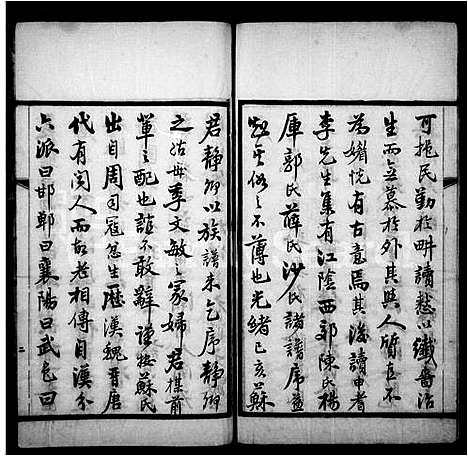 可挹民勤於畊讀愁以纖嗇治
生而無慕於外其與人質直不
為媚悅有古意焉其後讀申耆
李先生集有江陰西郭陳氏楊
厙郭氏薛氏沙氏諸譜序益
知其俗之不薄也光緒己亥蘇
君靜卿以族譜來乞序靜卿
之祖母季文敏之冢婦君楳前
輩之配也誼不敢辭謹按蘇氏
出自周司寇忿生歷漢魏晉唐
代有聞人而故老相傳自漢分
六派曰邯鄲曰襄陽曰武邑曰